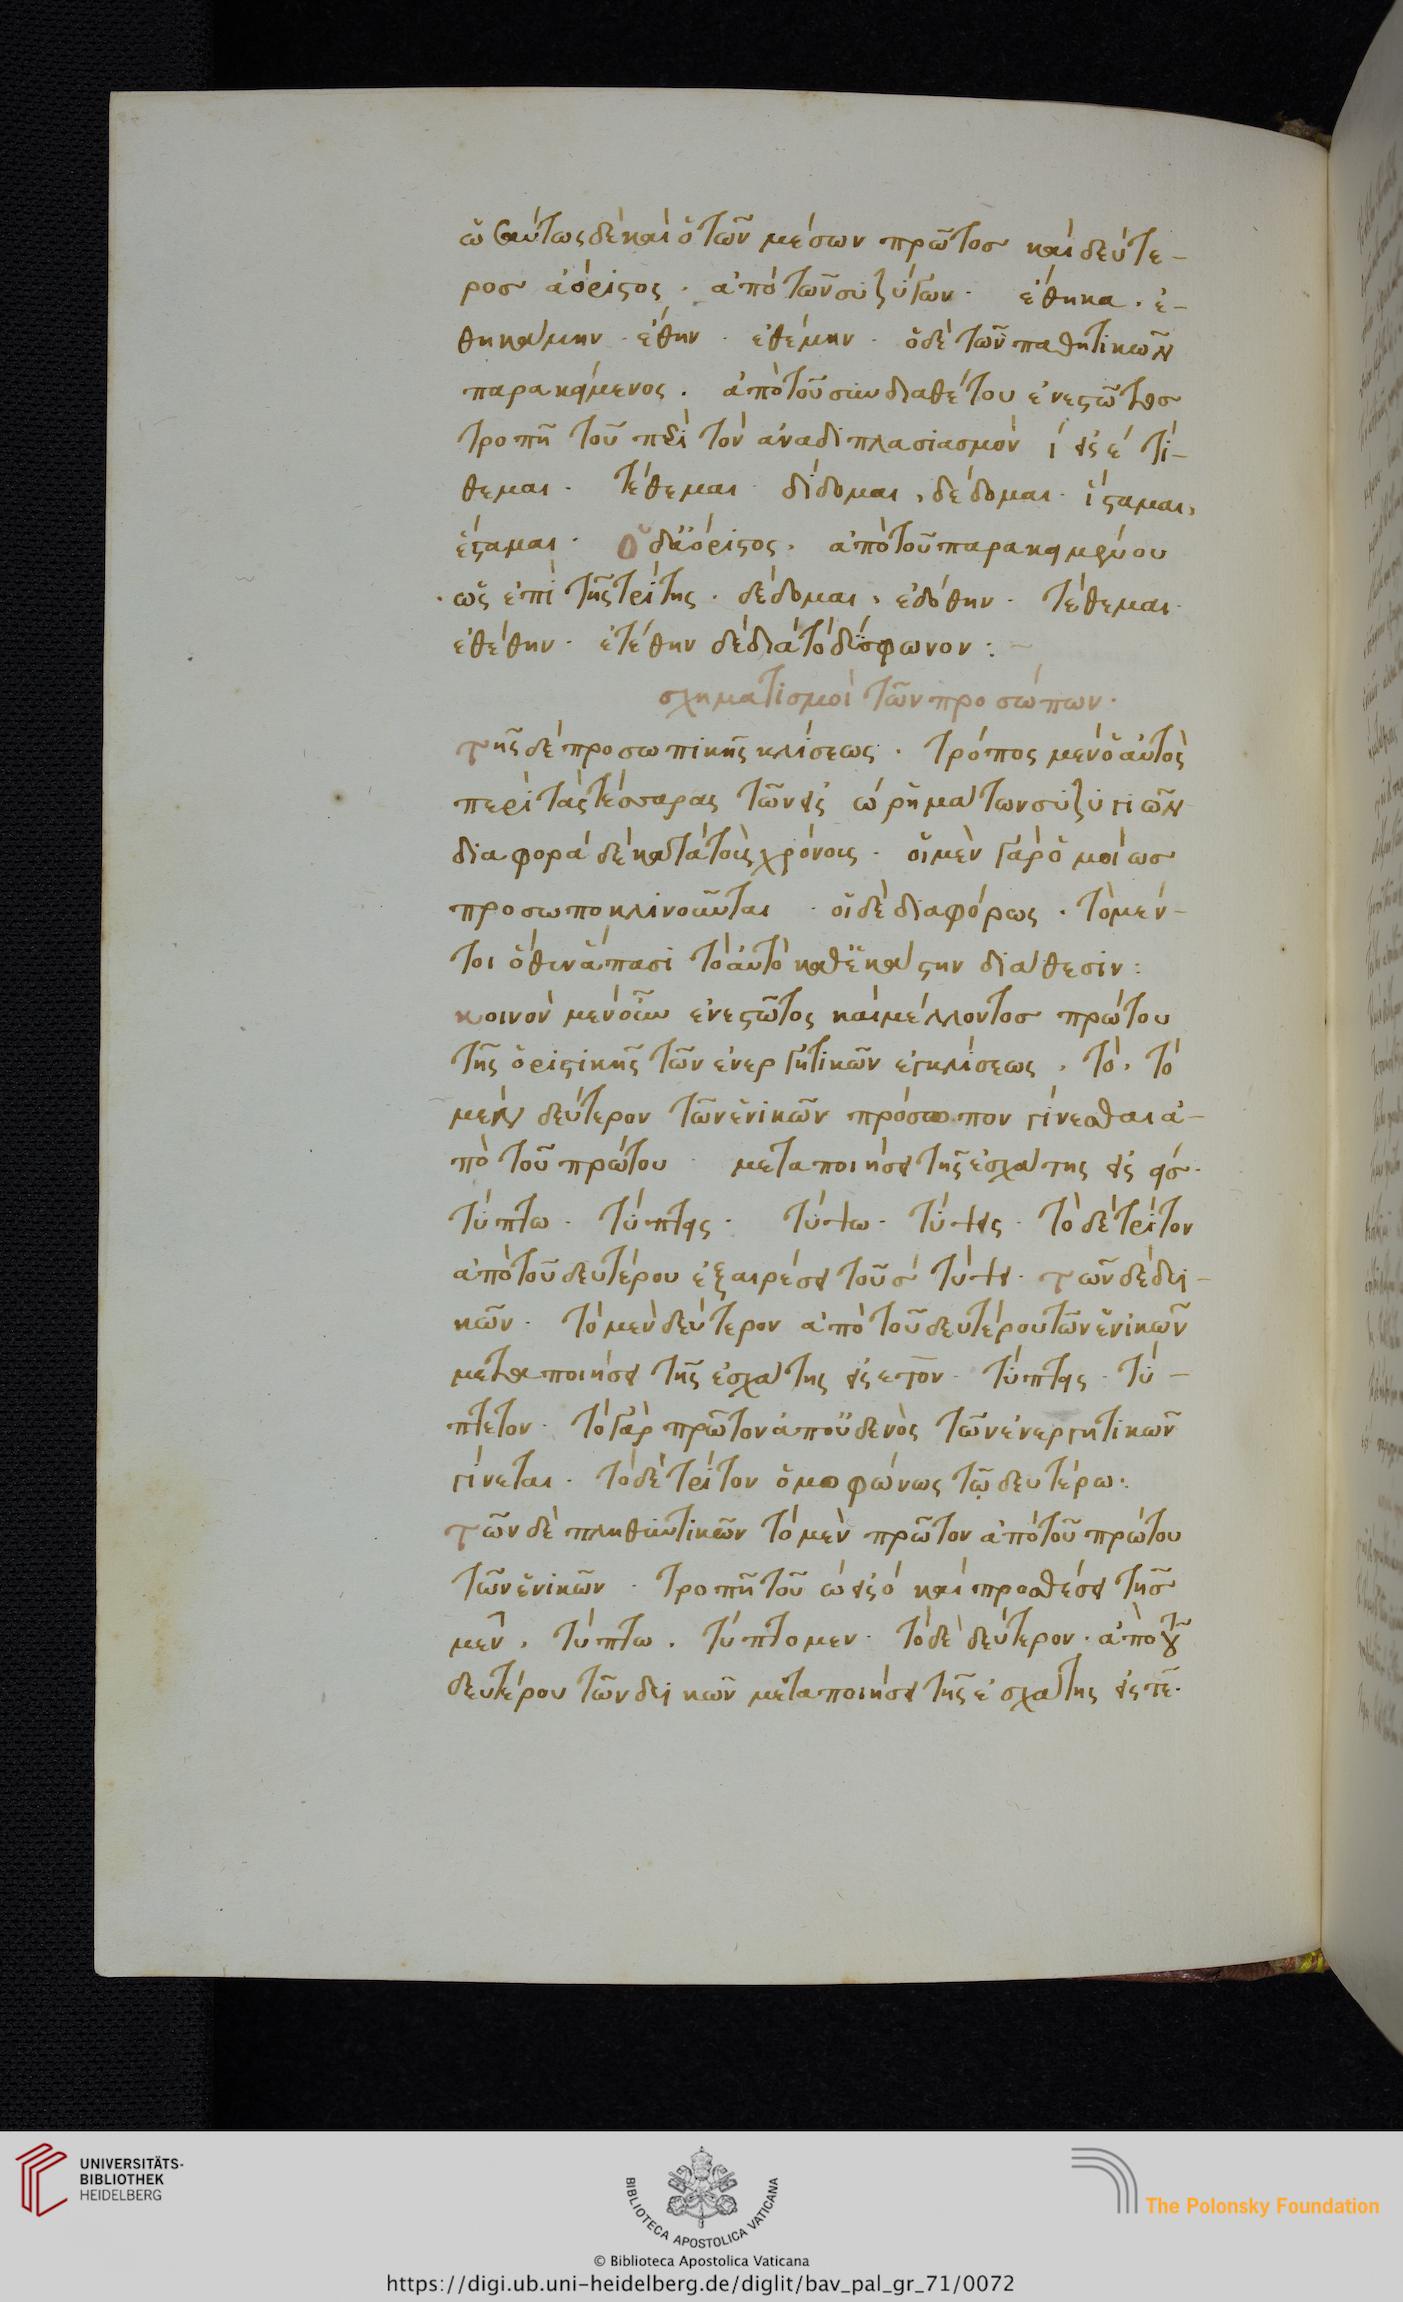 ὡσαύτως δὲ καὶ ὁ τῶν μέσων πρῶτος καὶ δεύτε-
ρος ἀόριστος · ἀπὸ τῶν συζύγων · ἔθηκα · ἐ-
θηκάμην · ἔθην · ἐθέμην · ὁ δὲ τῶν παθητικῶν
παρακείμενος · ἀπὸ τοῦ συνδιαθέτου ἐνεστῶτος
τροπῇ τοῦ περὶ τὸν ἀναδιπλασιασμὸν ι εἰς ε τί-
θεμαι · τέθεμαι · δίδομαι, δέδομαι · ἵσταμαι,
ἕσταμαι · Ὁ δ' ἀόριστος · ἀπὸ τοῦ παρακειμένου
ὡς ἐπὶ τῆς τρίτης · δέδομαι, ἐδόθην · τέθεμαι ·
ἐθέθην · ἐτέθην δὲ διὰ τὸ δίσφωνον :
σχηματισμοὶ τῶν προσώπων ·
τῆς δὲ προσωπικῆς κλίσεως · τρόπος μὲν ὁ αὐτὸς
περὶ τὰς τέσσαρας τῶν εἰς ω ῥημάτων συζυγιῶν
διαφορὰ δὲ κατὰ τοὺς χρόνους · οἱ μὲν γὰρ ὁμοίως
προσωποκλινοῦνται · οἱ δὲ διαφόρως · τὸ μέν-
τοι ὅθεν ἅπασι τὸ αὐτὸ καθ' ἑκάστην διάθεσιν :
κοινὸν μὲν οὖν ἐνεστῶτος καὶ μέλλοντος πρώτου
τῆς ὁριστικῆς τῶν ἐνεργητικῶν ἐγκλίσεως, τό, τὸ
μὲν δεύτερον τῶν ἑνικῶν πρόσωπον γίνεσθαι ἀ-
πὸ τοῦ πρώτου · μεταποιήσει τῆς ἐσχάτης εἰς εις ·
τύπτω · τύπτεις · τύψω · τύψεις · τὸ δὲ τρίτον
ἀπὸ τοῦ δευτέρου ἐξαιρέσει τοῦ ς τύψει · τῶν δὲ δυϊ-
κῶν · τὸ μὲν δεύτερον ἀπὸ τοῦ δευτέρου τῶν ἑνικῶν
μεταποιήσει τῆς ἐσχάτης εἰς ετον · τύπτεις · τύ-
πτετον · τὸ γὰρ πρῶτον ἀπ' οὐδενὸς τῶν ἐνεργητικῶν
γίνεται · τὸ δὲ τρίτον ὁμοφώνως τῷ δευτέρω :
τῶν δὲ πληθυντικῶν τὸ μὲν πρῶτον ἀπὸ τοῦ πρώτου
τῶν ἑνικῶν · τροπῇ τοῦ ω εἰς ο καὶ προσθέσει τῆς
μεν, τύπτω, τύπτομεν · τὸ δὲ δεύτερον · ἀπὸ τοῦ
δευτέρου τῶν δυϊκῶν μεταποιήσει τῆς ἐσχάτης εἰς τε ·
UNIVERSITÄTS-
BIBLIOTHEK
HEIDELBERG
BIBLIOTECA APOSTOLICA VATICANA
The Polonsky Foundation
© Biblioteca Apostolica Vaticana
https://digi.ub.uni-heidelberg.de/diglit/bav_pal_gr_71/0072